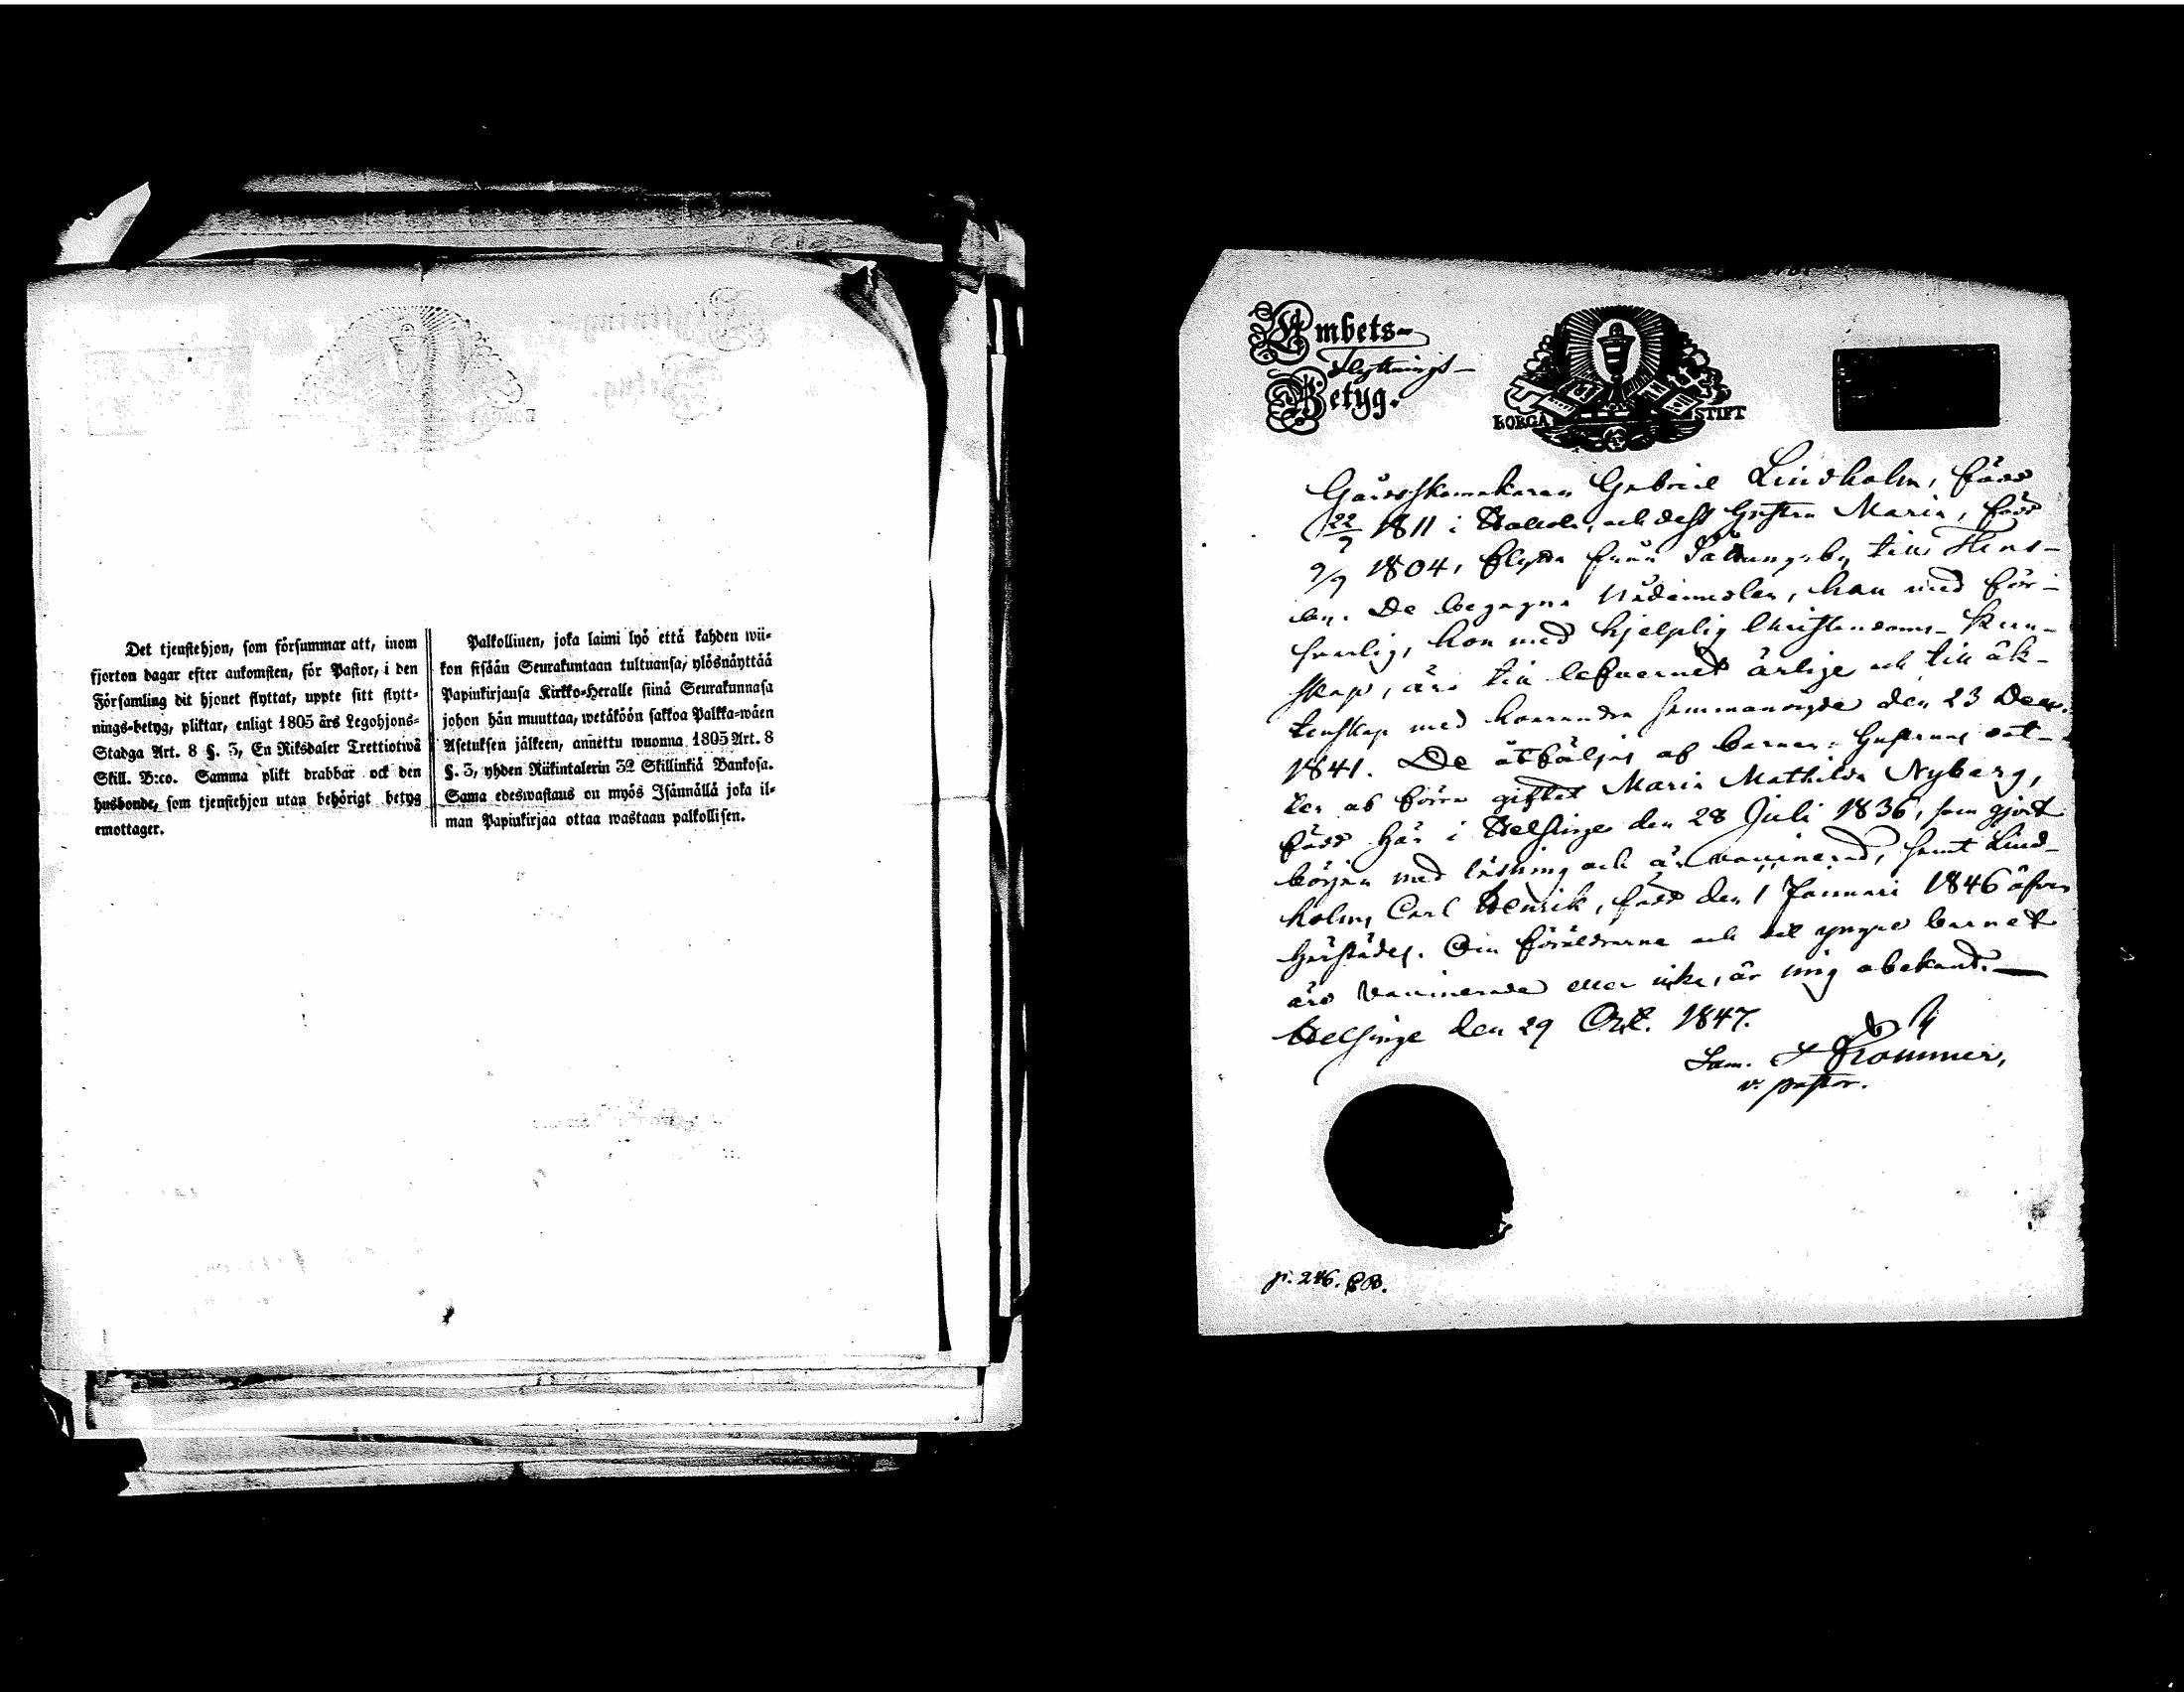 Det tjenstehjon, som försummar att, inom
fjorton dagar efter ankomsten, för Pastor, i den
Församling dit hjonet flyttat, uppte sitt flytt-
nings-betyg, pliktar, enligt 1805 års Legohjons-
Stadga Art. 8 §. 3, En Riksdaler Trettiotwå
Skill. B:co. Samma plikt drabbar ock den
husbonde, som tjenstehjon utan behörigt betyg
emottager.
Palkollinen, joka laimi lyö että kahden wii-
kon sisään Seurakuntaan tultuansa, ylösnäyttää
Papinkirjansa Kirkko-Heralle siinä Seurakunnasa
johon hän muuttaa, wetäköön sakkoa Palkka-wäen
Asetuksen jälkeen, annettu wuonna 1805 Art. 8
§. 3, yhden Riikintalerin 32 Skillinkiä Bankosa.
Sama edeswastaus on myös Isännällä joka il-
man Papinkirjaa ottaa wastaan palkollisen.
Embets-
Flyttnings-
Betyg.
BORGÅ STIFT
Gabriel Lindholm, född
22/9 1811 i och dess hustru Maria, född
9/9 1804, flytta från till
De begagna Nådemedlen, han med för-
svarlig, hon med hjelplig Christendoms-kun-
skap, äro till lefvernet ärlige och till äk-
tenskap med hvarandra sammanvigde den 23 Dec.
1841. De åtföljas af barnen: hustruns dot-
ter af förra giftet Maria Mathilda Nyberg,
född här i Helsinge den 28 Juli 1836, som gjort
början med läsning och är vaccinerad, samt Lind-
holm, Carl Henrik, född den 1 Januari 1846 äfven
härstädes. Om föräldrarne och det yngre barnet
äro vaccinerade eller icke, är mig obekant.—
Helsinge den 29 Oct. 1847.
Sam. Frommer,
v. pastor.
p. 246. CB.